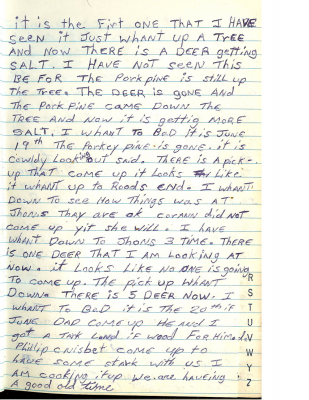 it is the Firt ONE THAT I HAVE
seen it Just whant up A TREE
AND NOW THERE is A DEER getting
SALT. I HAVE NOT seen THIS
BE FOR THE Porkpine is still up
the Tree. THE DEER is gone AND
THE Pork Pine CAME DOWN THE
TREE AND NOW iT is gettig MORE
SALT. I WHANT TO BED IT is JUNE
19th THE Porkey pine is gone. it is
cowldy Looking out said. THERE is A pick-
up THAT COME up it Looks Like
iT whant up to ROADS END. I WHANT
DOWN TO see How THINGS WAS AT
Jhons THAY ARE ok corminn did NOT
come up yit she will. I HAVE
WHANT DOWN TO Jhons 3 TIME. THERE
is ONE DEER THAT I AM LOOKING AT
NOW. iT Looks Like No one is going
To come up. THE pick up WHANT
DOWN. THERE is 5 DEER NOW. I
WHANT TO BED it is THE 20th if
JUNE DAD COME up HE AND I
got A Tnk Lond if wood FOR Him ed.
Phillip cnisbet come up to
HAVE some stark with us I
AM cooking it up we are haveing
A good old time
R
S
T
U
V
W
Y
Z